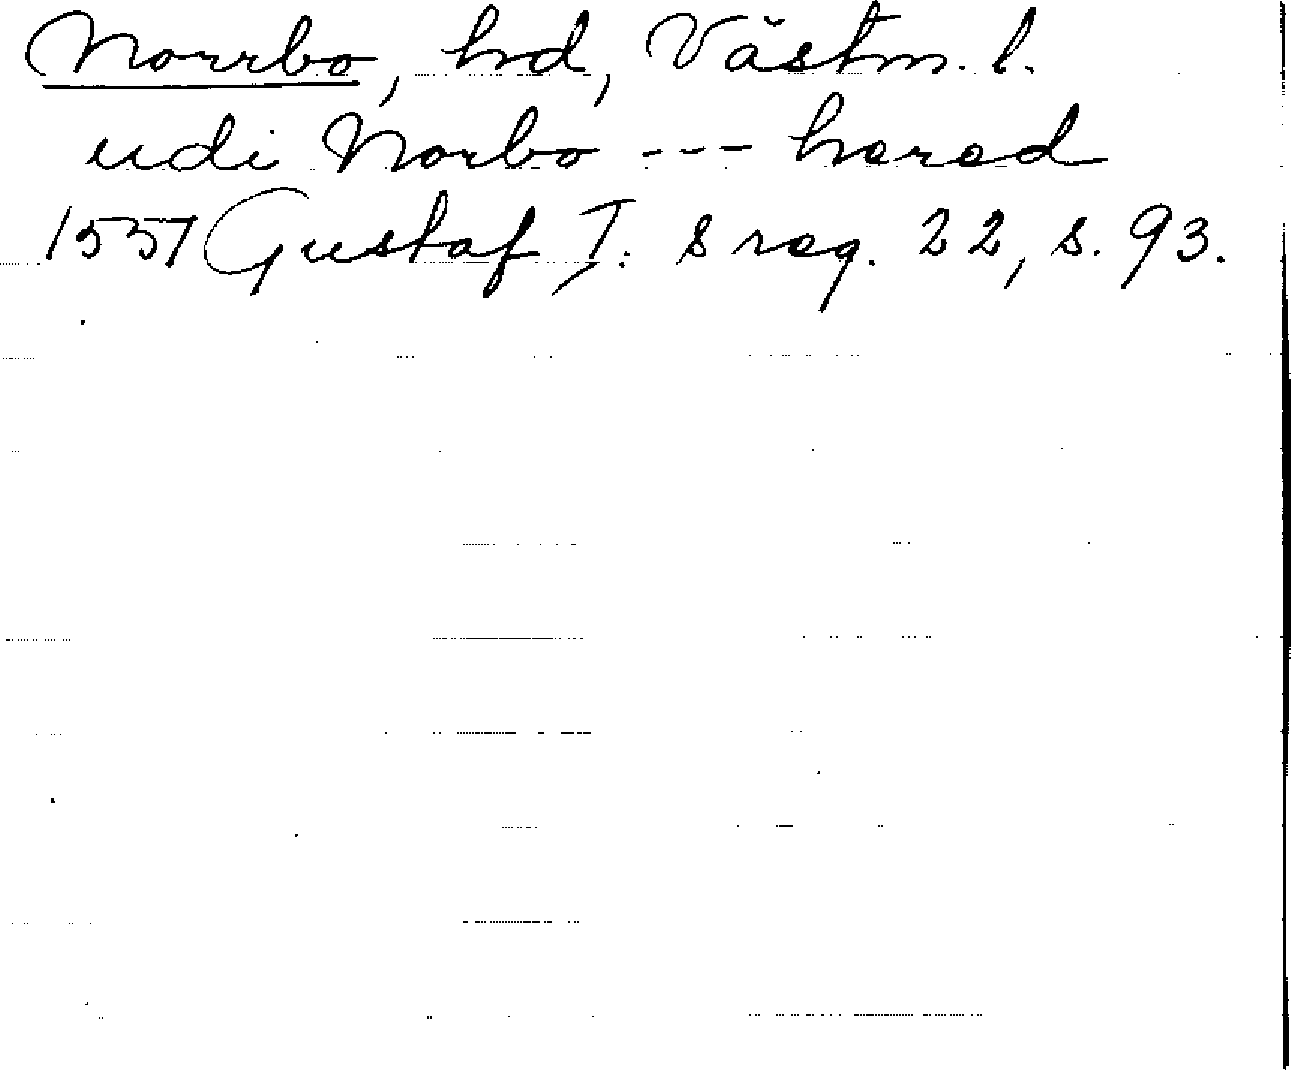 Norrbo, hd, Västm. l.
udi Norbo --- hered
1557 Gustaf I: s reg. 22, s. 93.